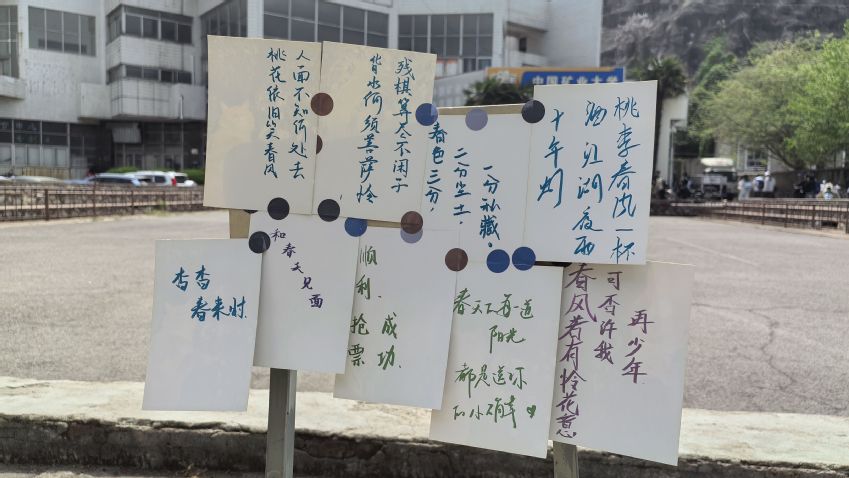 中国矿业大学
人面不知何处去
桃花依旧笑春风
残棋算不闲
背水何须菩萨怜
春色三分，
二分尘土，
一分私藏。
桃李春风一杯
酒江湖夜雨
十年灯
杳杳
春来时.
和春天见面
顺利，抢票
成功.
春天的每一道
阳光
都是送你
的小确幸
春风若有怜花意
可否许我
再少年.